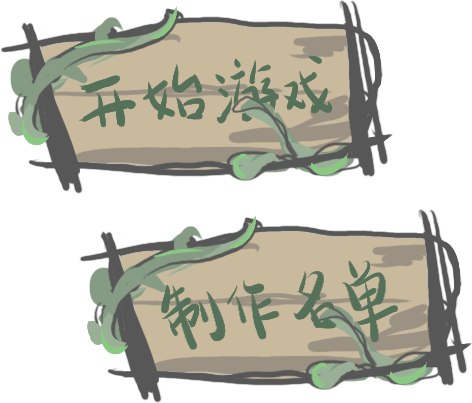 开始游戏
制作名单